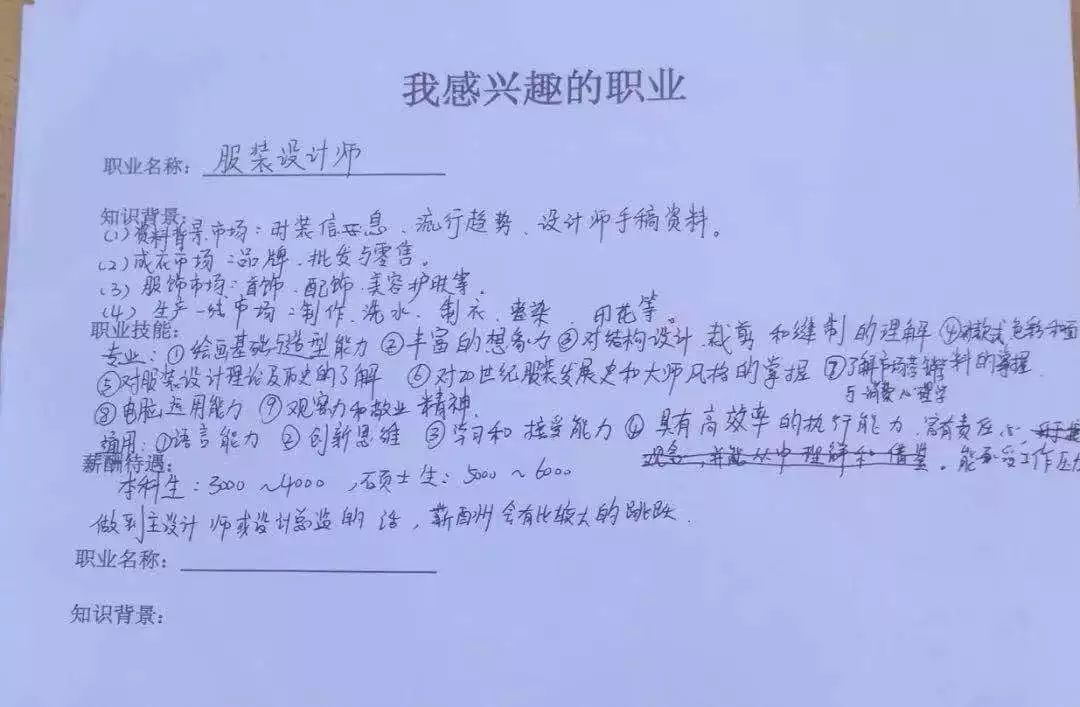 我感兴趣的职业
职业名称：服装设计师
知识背景：
(1)资料背景市场：时装信息、流行趋势、设计师手稿资料。
(2)成衣市场：品牌、批发与零售。
(3)服饰市场：首饰、配饰、美容护肤等。
(4)生产一线市场：制作、洗水、制衣、染 印花等。
职业技能：
专业：①绘画基础与造型能力②丰富的想象力③对结构设计、裁剪和缝制的理解④对款式色彩和面
料的掌握
⑤对服装设计理论及历史的了解 ⑥对20世纪服装发展史和大师风格的掌握 ⑦了解市场营销学
与消费心理学
⑧电脑运用能力 ⑨观察力和敬业精神.
通用：①语言能力 ②创新思维 ③学习和接受能力 ④具有高效率的执行能力、富有责任心、
观念，并能从中理解和借鉴。能承受工作压力
薪酬待遇：
本科生：3000～4000，硕士生：5000～6000
做到主设计师或设计总监的话，薪酬会有比较大的跳跃.
职业名称：
知识背景：